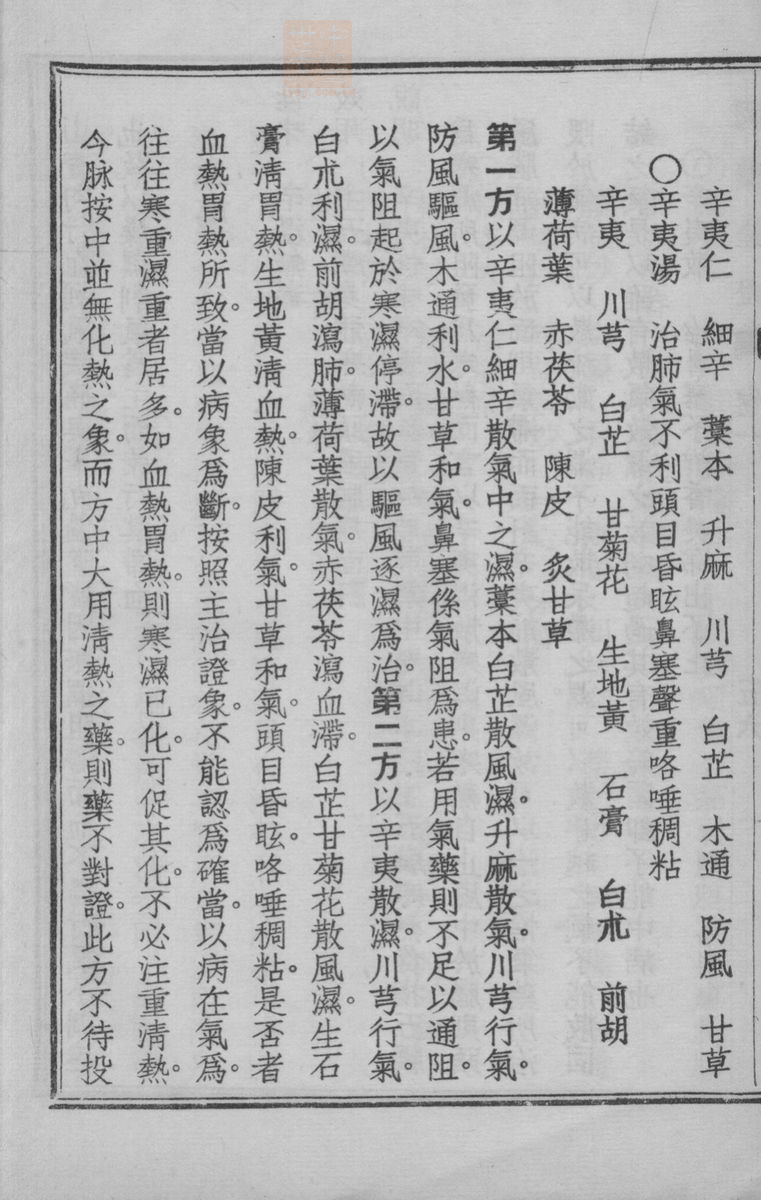 辛夷仁　細辛　藁本　升麻　川芎　白芷　木通　防風　甘草
〇辛夷湯　治肺氣不利頭目昏眩鼻塞聲重咯唾稠粘
辛夷　川芎　白芷　甘菊花　生地黃　石膏　白朮　前胡
薄荷葉　赤茯苓　陳皮　炙甘草
第一方以辛夷仁細辛散氣中之濕。藁本白芷散風濕。升麻散氣。川芎行氣。
防風驅風。木通利水。甘草和氣。鼻塞係氣阻爲患。若用氣藥則不足以通阻。
以氣阻起於寒濕停滯。故以驅風逐濕爲治。第二方以辛夷散濕。川芎行氣。
白朮利濕。前胡瀉肺。薄荷葉散氣。赤茯苓瀉血滯。白芷甘菊花散風濕。生石
膏清胃熱。生地黃清血熱。陳皮利氣。甘草和氣。頭目昏眩。咯唾稠粘。是否者
血熱胃熱所致。當以病象爲斷。按照主治證象。不能認爲確當。以病在氣。爲。
往往寒重濕重者居多。如血熱胃熱。則寒濕已化。可促其化。不必注重清熱。
今脉按中並無化熱之象。而方中大用清熱之藥。則藥不對證。此方不待投